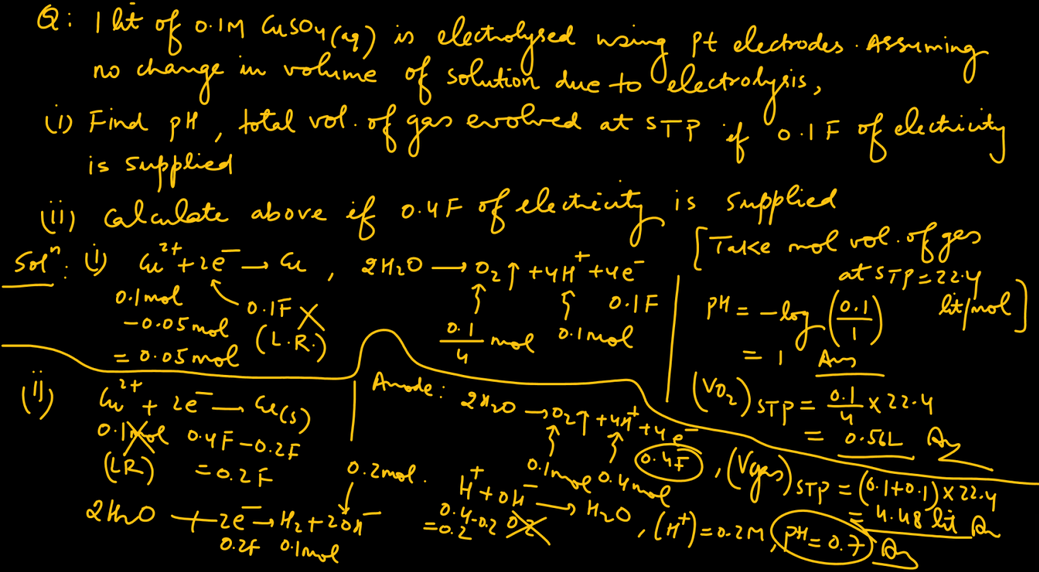 Q: 1 lit of 0.1M CuSO4(aq) is electrolysed using Pt electrodes. Assuming
no change in volume of solution due to electrolysis,
(i) Find pH, total vol. of gas evolved at STP if 0.1F of electricity
is supplied
(ii) Calculate above if 0.4F of electricity is supplied
[Take mol vol. of gas
at STP = 22.4
lit/mol]
Soln: (i) Cu2+ + 2e− → Cu, 2H2O → O2↑ + 4H+ + 4e−
0.1mol 0.1F 0.1F
−0.05mol (L.R.) 0.1/4 mol 0.1mol
= 0.05mol
pH = −log(0.1/1)
= 1 Ans
(VO2)STP = 0.1/4 × 22.4
= 0.56L Ans
(ii) Cu2+ + 2e− → Cu(s)
0.1mol 0.4F − 0.2F
(LR) = 0.2F
2H2O + 2e− → H2 + 2OH−
0.2F 0.1mol
0.2mol.
Anode: 2H2O → O2↑ + 4H+ + 4e−
0.1mol 0.4mol 0.4F
H+ + OH− → H2O, (H+) = 0.2M, pH = 0.7 Ans
0.4−0.2 0.2
=0.2
, (Vgas)STP = (0.1+0.1) × 22.4
= 4.48 lit Ans